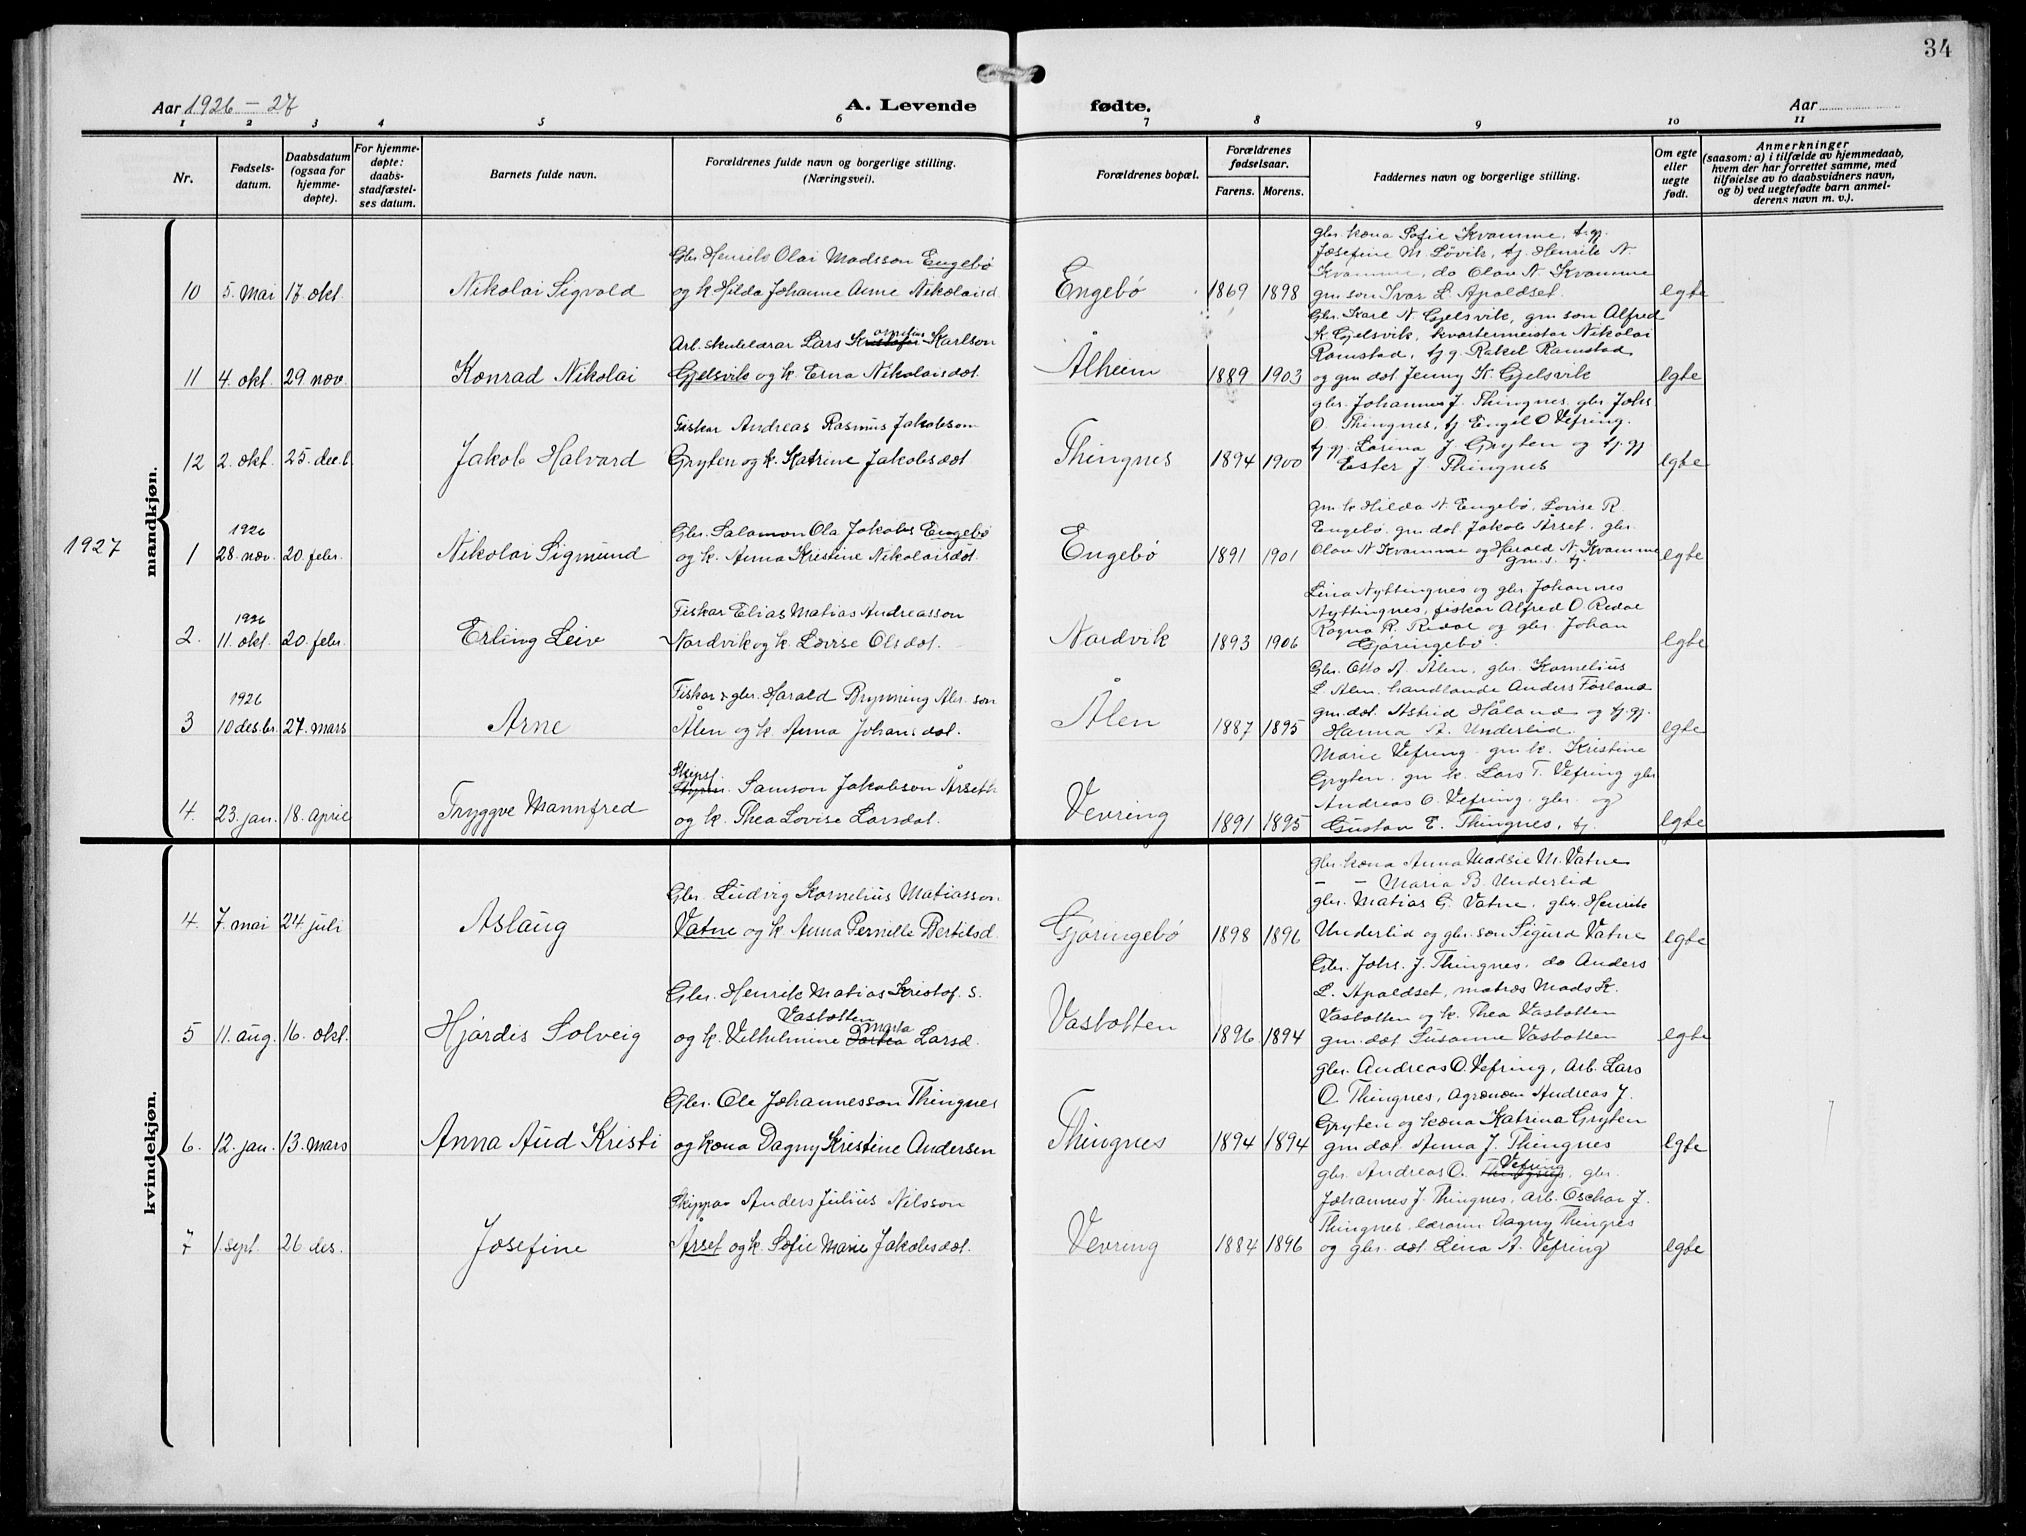 34
Aar 1926 - 27 A. Levende fødte. Aar
1 2 3 4 5 6 7 8 9 10 11
Nr.
Fødsels-
datum.
Daabsdatum
(ogsaa for
hjemme-
døpte).
For hjemme-
døpte:
daabs-
stadfæstel-
ses datum.
Barnets fulde navn.
Forældrenes fulde navn og borgerlige stilling.
(Næringsvei).
Forældrenes bopæl.
Forældrenes
fødselsaar.
Farens. Morens.
Faddernes navn og borgerlige stilling.
Om egte
eller
uegte
født.
Anmerkninger
(saasom: a) i tilfælde av hjemmedaab,
hvem der har forrettet samme, med
tilføielse av to daabsvidners navn,
og b) ved uegtefødte barn anmel-
derens navn m. v.).
mandkjøn.
10 5. mai 17. okt. Nikolai Sigvald
Gbr. Henrik Olai Madsson Engebø
og k. Hilda Johanne Anne Nikolaisd.
Engebø 1869 1898
gbr. kona Sofie Kvamme, t. gj.
Josefine M. Løvik, tj. Henrik N.
Kvamme, do Olav N. Kvamme
gm. son Ivar L. Apaldset.
egte
11 4. okt. 29 nov. Konrad Nikolai
Arb. skulelærar Lars Kornelius Karlson
Gjelsvik og k. Erna Nikolaisdot.
Ålheim 1889 1903
Gbr. Karl N. Gjelsvik, gm. son Alfred
K. Gjelsvik, kvartermeistar Nikolai
Ramstad, tj. g. Rakel Ramstad
og gm. dot. Jenny K. Gjelsvik
egte
12 2. okt. 25. des. Jakob Halvard
Fiskar Andreas Rasmus Jakobson
Gryten og k. Katrine Jakobsdot.
Thingnes 1894 1900
gbr. Johannes J. Thingnes, gbr. Johs.
O. Thingnes, tj. Engel O. Vefring.
tj. gj. Larina J. Gryten og tj. gj.
Ester J. Thingnes
egte
1927
1 1926
28. nov. 20 febr. Nikolai Sigmund
Gbr. Salamon Ola Jakobs Engebø
og k. Anna Kristine Nikolaisdot.
Engebø 1891 1901
gm. k. Hilda N. Engebø, Lovise R.
Engebø, gm. dot. Jakob Årset. gbr.
Olav N. Kvamme og Harald N. Kvamme
gm. s. tj.
egte
2. 1926
11. okt. 20. febr. Erling Leiv
Fiskar Elias Matias Andreasson
Nordvik og k. Lovise Olsdot.
Nordvik 1893 1906
Lina Nyttingnes og gbr. Johannes
Nyttingnes, fiskar Alfred O. Redal
Ragna R. Redal og gbr. Johan
Gjøringebø.
egte
3 1926
10 desbr. 27. mars Arne
Fiskar & gbr. Harald Brynning Abr. son
Ålen og k. Anna Johansdot.
Ålen 1887 1895
Gbr. Otto A. Ålen, gbr. Kornelius
L. Ålen, handlande Anders Førland
gm. dot. Astrid Håland og tj. gj.
Hanna A. Underlid.
egte
4. 23. jan. 18. april Tryggve Mannfred
Skipsf. Samson Jakobson Årseth
og k. Thea Lovise Larsdot.
Vevring 1891 1895
Marie Vefring, gm. k. Kristine
Gryten, gm. k. Lars T. Vefring gbr.
Andreas O. Vefring. gbr. og
Gustav E. Thingnes, tj.
egte
kvindekjøn.
4. 7. mai 24 juli Aslaug
Gbr. Ludvig Kornelius Matiasson
Vatne og k. Anna Pernille Bertilsd.
Gjøringebø 1898 1896
gbr. kona Anna Madsie M. Vatne
– – Maria B. Underlid
gbr. Matias G. Vatne. gbr. Henrik
Underlid og gbr. son Sigurd Vatne
egte
5 11. aug. 16. okt. Hjørdis Solveig
Gbr. Henrik Matias Kristof. s.
Vasbotten
og k. Vilhelmine Dortea Marta Larsd.
Vasbotten 1896 1894
Gbr. Johs. J. Thingnes, do Anders
L. Apaldset, matros Mads K.
Vasbotten og k. Thea Vasbotten
gm. dot. Susanne Vasbotten
egte
6. 12. jan. 13. mars Anna Aud Kristi
Gbr. Ole Johannesson Thingnes
og kona Dagny Kristine Andersen
Thingnes 1894 1894
gbr. Andreas O. Vefring, Arb. Lars
O. Thingnes, Agronom Andreas J.
Gryten og kona Katrina Gryten
gm. dot. Anna J. Thingnes
egte
7 1. sept. 26 des. Josefine
Skippar Anders Julius Nilsson
Årset og k. Sofie Marie Jakobsdot.
Vevring 1884 1896
gbr. Andreas O. Thingnes Vefring, gbr.
Johannes J. Thingnes, arb. Oschar J.
Thingnes, lærarin. Dagny Thingnes
og gbr. dot. Lina A. Vefring
egte